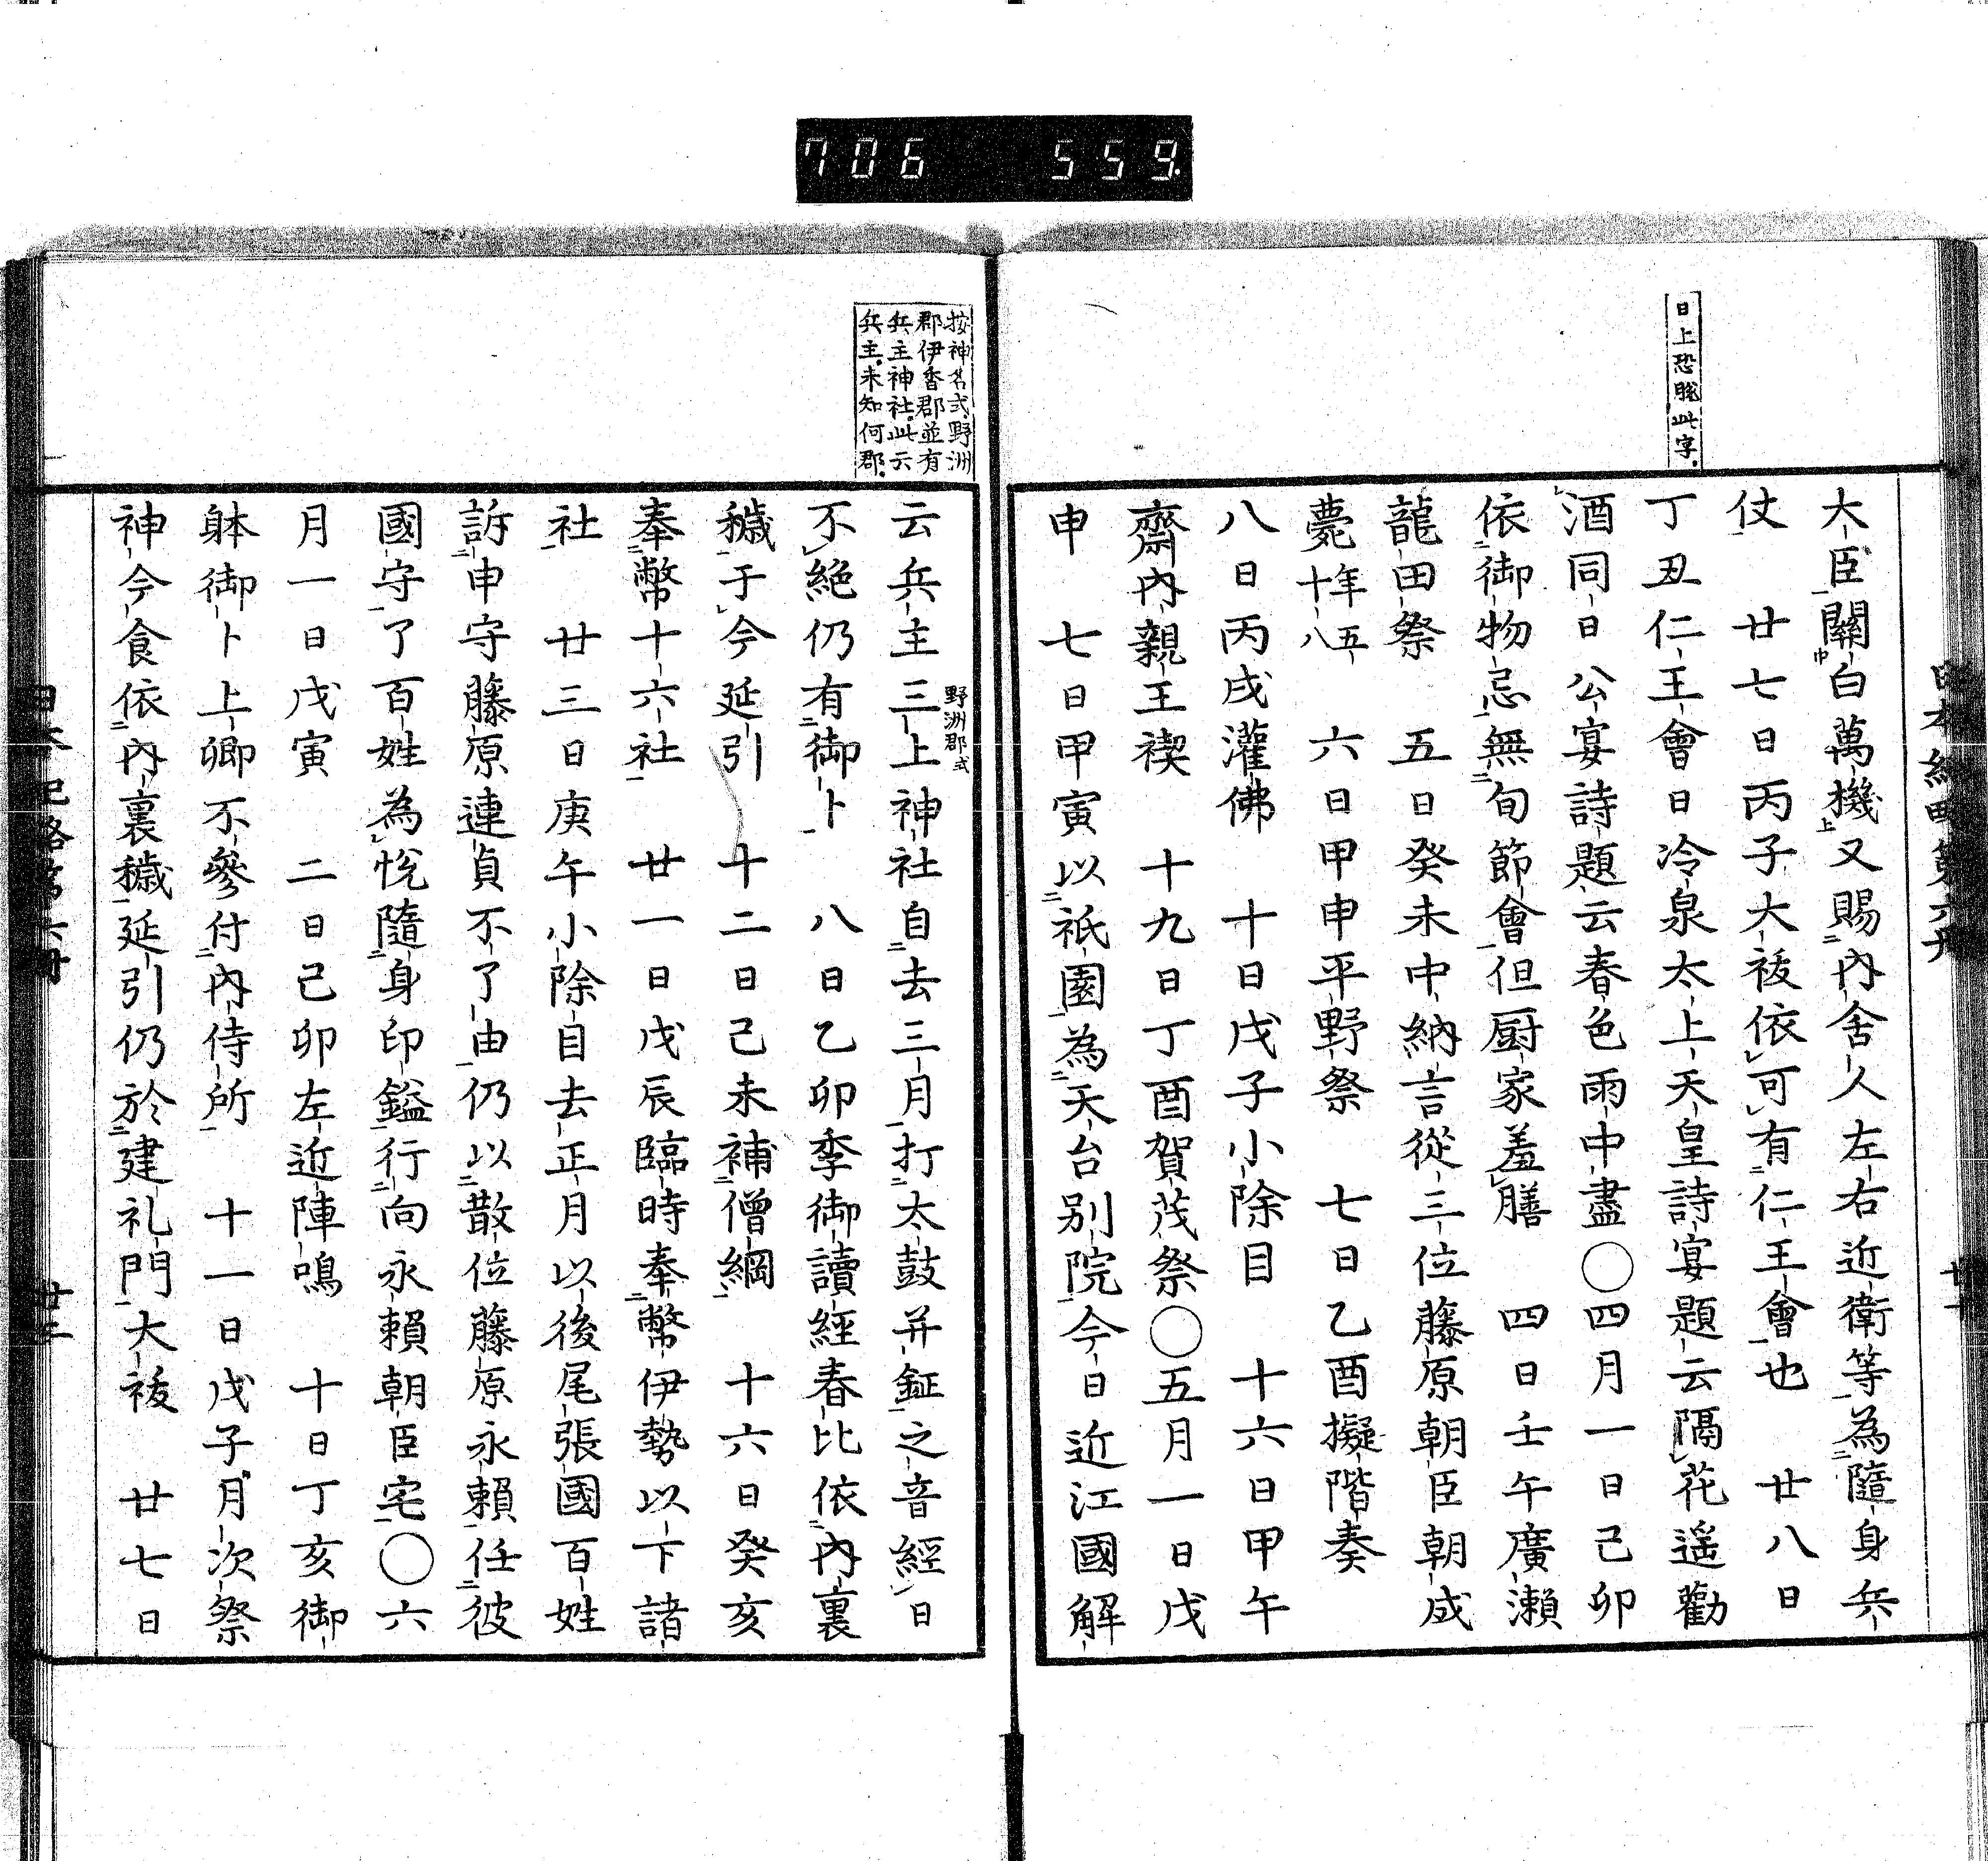 706 559
日上恐脫此字
大臣關白萬機又賜內舍人左右近衛等為隨身兵
仗 廿七日丙子大祓依可有仁王會也 廿八日
丁丑仁王會日冷泉太上天皇詩宴題云隔花遥勸
酒同日公宴詩題云春色雨中盡〇四月一日己卯
依御物忌無旬節會但厨家羞膳 四日壬午廣瀨
龍田祭 五日癸未中納言從三位藤原朝臣朝成
薨年五十八 六日甲申平野祭 七日乙酉擬階奏
八日丙戌灌佛 十日戊子小除目 十六日甲午
齋內親王禊 十九日丁酉賀茂祭〇五月一日戊
申 七日甲寅以祇園為天台別院今日近江國解
按神名式野洲
郡伊香郡並有
兵主神社此云
兵主未知何郡
云兵主三上神社自去三月打太鼓并鉦之音經日
野洲郡式
不絕仍有御卜 八日乙卯季御讀經春比依內裏
穢于今延引 十二日己未補僧綱 十六日癸亥
奉幣十六社 廿一日戊辰臨時奉幣伊勢以下諸
社 廿三日庚午小除目去正月以後尾張國百姓
訴申守藤原連貞不了由仍以散位藤原永賴任彼
國守了百姓為悅隨身印鎰行向永賴朝臣宅〇六
月一日戊寅 二日己卯左近陣鳴 十日丁亥御
躰御卜上卿不參付內侍所 十一日戊子月次祭
神今食依內裏穢延引仍於建礼門大祓 廿七日